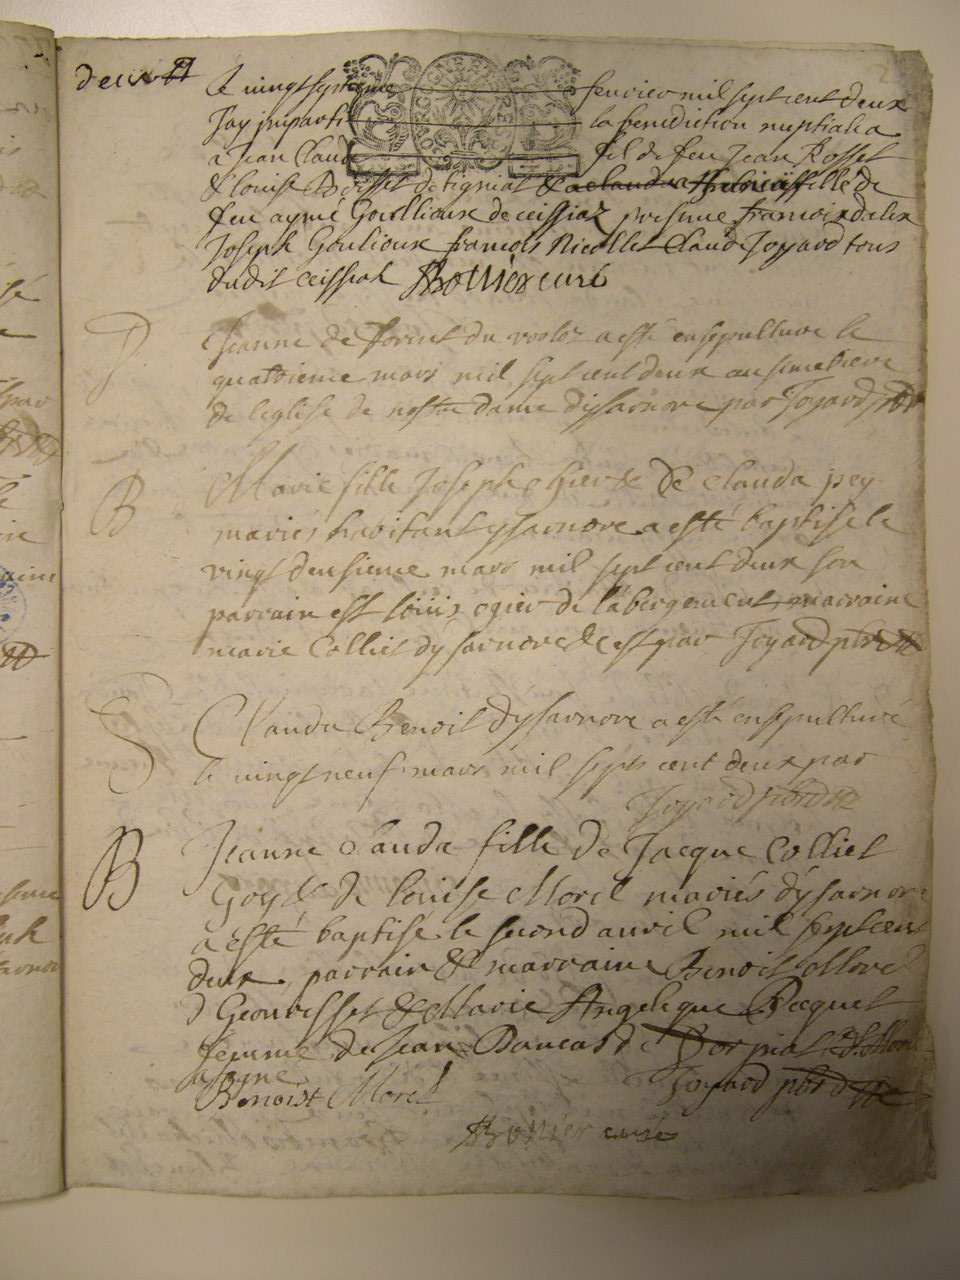 Le vingt septieme fevrier mil sept cent deux
Jay imparti la benediction nuptiale a
a Jean Claude fil de feu Jean Rosset
& louise Boisset de fille de
feu aymé Goullioux de ceissiaz presens francois
Joseph Goulioux francois Nicollet Claude Joyard tous
dudit ceissiat Bottier curé
S
Jeanne de du a esté ensepulture le
quatrieme mars mil sept cent deux au simetiere
de leglise de nostre dame dysarnore par Joyard pbr
B
Marie fille Joseph ogier & de Clauda pey
mariés habitant ysarnore a esté baptisé le
vingt deusieme mars mil sept cent deux son
parrain est louis ogier de labergement marraine
marie Colliet dysarnore & c est par Joyard pbr
S
Clauda Benoit dysarnore a esté ensepulturé
le vingt neuf mars mil sept cent deux par
Joyard pbr
B
Jeanne Clauda fille de Jacque Colliet
Goy & de louise Morel mariés dysarnore
a esté baptisé le second avril mil sept cent
deux parrain & marraine Benoit Morel
d Geovresset & Marie Angelique Becquet
femme de Jean
signe
Benoist Morel Joyard pbr
Bottier curé